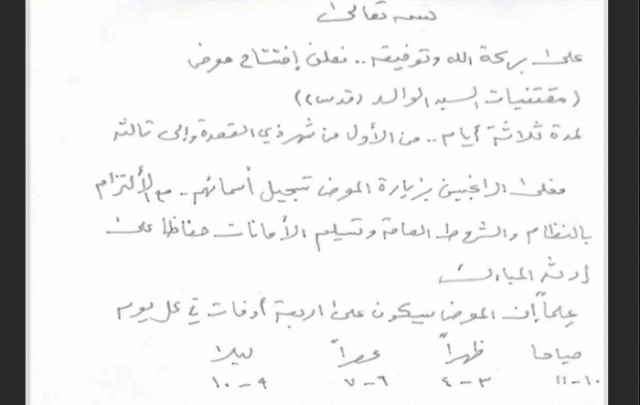 بسمه تعالى
على بركة الله وتوفيقه .. نعلن إفتتاح معرض
(مقتنيات السيد الوالد (قدس))
لمدة ثلاثة أيام .. من الأول من شهر ذي القعدة وإلى ثالثه
فعلى الراغبين بزيارة المعرض تسجيل أسمائهم .. مع الألتزام
بالنظام والشروط العامة وتسليم الأمانات حفاظاً على
إرثه المبارك
علماً إن المعرض سيكون على اربعة أوقات في كل يوم
صباحا ظهراً عصراً ليلا
١٠-١١ ٣-٤ ٦-٧ ٩-١٠